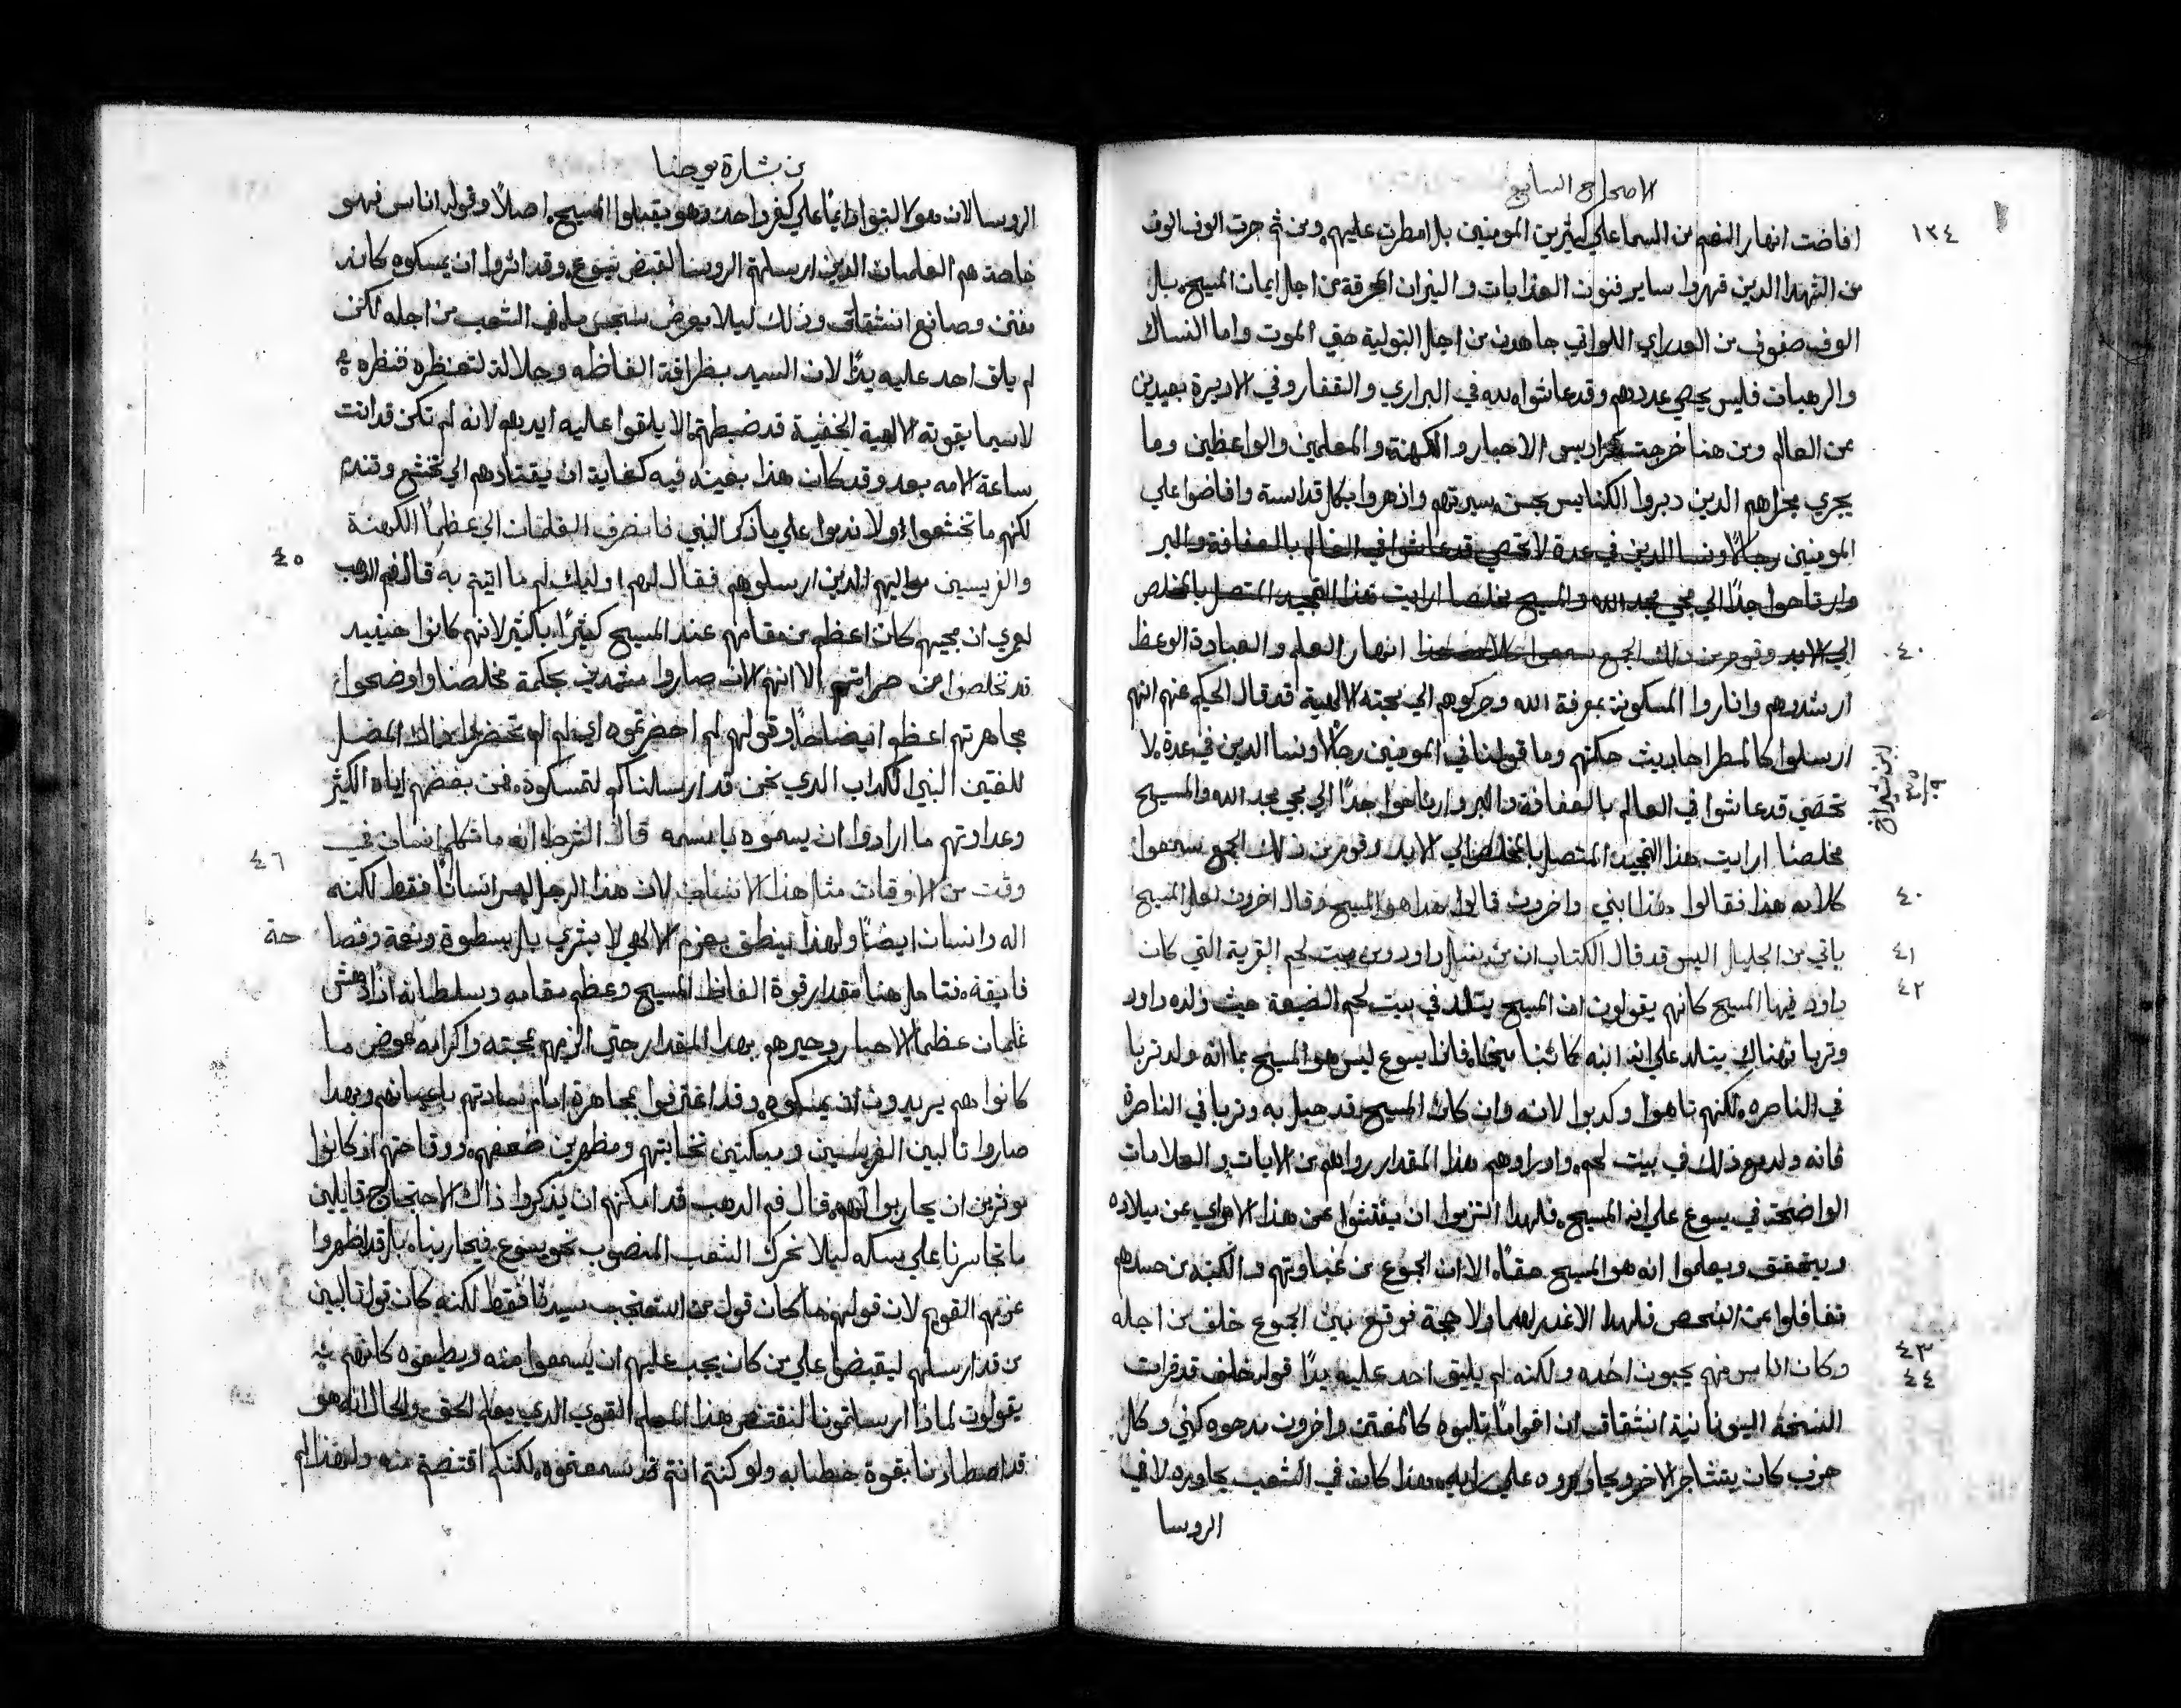 الاصحاح السابع
١٣٤
افاضت انهار النعم من السما علي كثيرين المومنين بل امطرت عليهم ومن ثم جرت الوف الوف
من الشهدا الدين قهروا ساير فنون العدابات والنيران المحرقة من اجل ايمان المسيح بل
الوف صفوف من العداري اللواتي جاهدن من اجل البتولية حتي الموت واما النساك
والرهبان فليس يحصي عددهم وقد عاشوا لله في البراري والقفار وفي الاديرة بعيدين
عن العالم ومن هنا خرجت كراديس الاحبار والكهنة والمعلمين والواعظين وما
يجري مجراهم الدين دبروا الكنايس بحسن سيرتهم وازهروا بكل قداسة وافاضوا علي
المومنين رجالاً ونسا الدين في عدة لا تحصي قد عاشوا في العالم بالعفافة والبر
وارتاحوا جداً الي مجي مجد الله والمسيح مخلصنا ارايت هذا التمجيد المتصل بالمخلص
الي الابد وقوم من ذلك الجمع سمعوا كلامه هذا انهار العلم والعبادة الوعظ
٤٠
ارشدوهم واناروا المسكونة بمعرفة الله وحركوهم الي محبته الالهية قد قال الحكيم عنهم انهم
ارسلوا كالمطر احاديث حكمتهم وما قولنا في المومنين رجالاً ونسا الدين في عدة لا
تحصي قد عاشوا في العالم بالعفافة والبر وارتاحوا جداً الي مجي مجد الله والمسيح
مخلصنا ارايت هذا التمجيد المتصل بالمخلص الي الابد وقوم من ذلك الجمع سمعوا
كلامه هذا فقالوا هذا نبي واخرون قالوا هذا هو المسيح وقال اخرون لعل المسيح
٤٠
ياتي من الجليل اليس قد قال الكتاب ان من نسل داود ومن بيت لحم القرية التي كان
٤١
داود فيها المسيح كانهم يقولون ان المسيح يتلد في بيت لحم الضيعة حيث ولد داود
٤٢
وتربا وهناك يتلد علي انه ابنه كما تنبا ميخا فاذا يسوع ليس هو المسيح بما انه ولد وتربا
في الناصره لكنهم تاهوا وكدبوا لانه وان كان المسيح قد حبل به وتربا في الناصرة
فانه ولد مع ذلك في بيت لحم واد راوهم هذا المقدار من الايات والعلامات
الواضحة في يسوع علي انه المسيح فلهذا التزموا ان يفتشوا عن هذا الامر اي عن ميلاده
ويتحقق ويعلموا انه هو المسيح حقاً الا ان الجموع من غباوتهم والكتبة من حسدهم
تغافلوا عن الفحص فلهدا لا عذر لهما ولا حجة فوقع بين الجموع خلف من اجله
٤٣
وكان اناس منهم يحبون اخذه ولكنه لم يليق احد عليه يداً قوله خلف قد قرات
٤٤
النسخة اليونانية انشقاق ان اقواماً تلبوه كالمفتن واخرون مدحوه كنبي وكال
حزب كان يتشاجر الاخر ويجاوره علي رايه وهذا كان في الشعب بجاوره لا في
الروسا
من بشارة يوحنا
الروسا لان هولا لبثوا دايماً علي كفر واحد وهو يقبلوا المسيح اصلاً وقوله اناس فهو
خاصة هم الغلمان الدين ارسلتهم الروسا لقبض يسوع وقد اثروا ان يمسكوه كانه
مفتن وصانع انشقاق وذلك ليلا يعرض سجس ما في الشعب من اجله لكن
لم يلق احد عليه يداً لان السيد بظرافة الفاظه وجلالة لتعنظره فنظره
لاسيما بقوته الالهية الخفية قد ضبطتهم الا يلقوا عليه ايديهم لانه لم تكن قد انت
ساعة الامه بعد وقد كان هذا بعينه فيه كفاية ان يقتادهم الي تخشع وتندم
لكنهم ما تخشعوا ولا ندموا علي ما ذكر النبي فانصرف الغلمان الي عظما الكهنة
والفريسين مواليهم الدين ارسلوهم فقال لهم اوليك لم ما اتيتم به قال فم الدهب
٤٥
لعمري ان مجيهم كان اعظم من مقامهم عند المسيح كثيراً باكثر لانهم كانوا حينيد
قد تخلصوا من حراستهم الا انهم الان صاروا منتمين بحكمة مخلصنا واوضحوا
مجاهرتهم اعظم ايضاحاً وقولهم لم احضرتموه اي لم لم تحضروا ذاك المضل
للفتين النبي الكداب الدي نحن قد ارسلناكم لتمسكوه فمن بغضهم اياه الكثير
وعداوتهم ما ارادوا ان يسموه باسمه قال الشرط انه ما تكلم انسان في
٤٦
وقت من الاوقات مثل هذا الانسان لان هذا الرجل ليس انساناً فقط لكنه
اله وانسان ايضاً ولهذا ينطق بعزم الاهي لا بشري بل بسطوة ونعمة وفصا
حة
فايقة فتامل هنا مقدار قوة الفاظ المسيح وعظم مقامه وسلطانه اذ ادهش
غلمان عظما الاحبار وحيرهم بهدا المقدار حتي الزمهم بمحبته واكرامه عوض ما
كانوا هم يريدون ان يمسكوه وقد اعترفوا بمجاهرة امام ساداتهم باعيانهم وبهدا
صاروا تالبين الفريسين ومبكتين نخابتهم ومظهرين ضعفهم ووقاحتهم اذ كانوا
موثرين ان يحاربوا الههم قال فم الدهب قد امكنهم ان يذكروا ذاك الاحتجاج قايلين
ما تجاسرنا علي مسكه ليلا نحرك الشعب المنصوب نحو يسوع فيحاربناه بل قد اظهروا
عزمهم القويم لان قولهم ما كان قول من استعجب سيدنا فقط لكنه كان قول تالبين
من قد ارسلهم ليقبضوا علي من كان يجب عليهم ان يسمعوا منه ويطيعوه كانهم به
يقولون لماذا ارسلتمونا لنقتنص هذا المعلم القوي الدي يعلم الحق والحال انه هو
قد اصطادنا بقوة خطابه ولو كنتم انتم قد سمعتموه لكنتم اقتنصتم منه ولهذا لم